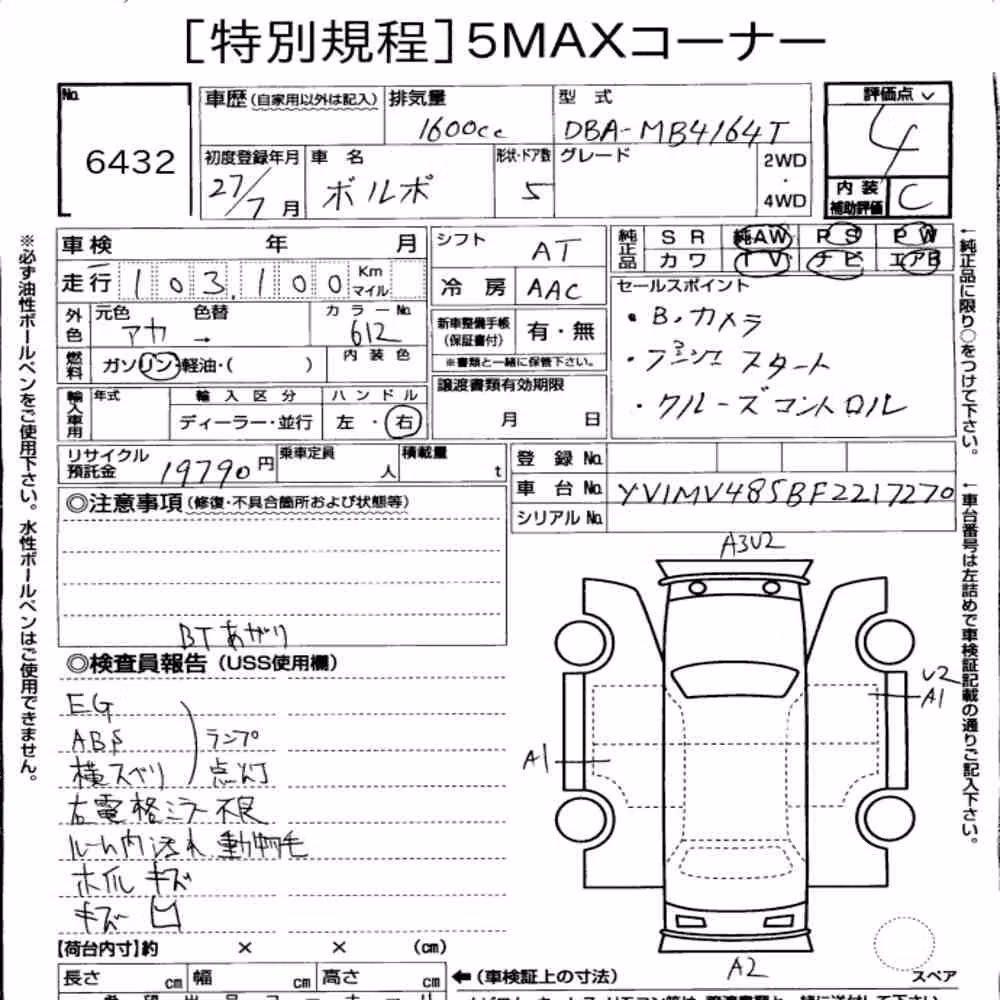 [特別規程]5MAXコーナー
No. 6432
車歴(自家用以外は記入) 排気量 1600cc
型式 DBA-MB4164T
評価点 4
初度登録年月 27/7月
車名 ボルボ
形状・ドア数 5
グレード
2WD・4WD
内装補助評価 C
車検 年 月
シフト AT
純正品 SR 純AW PS PW
カワ TV ナビ エアB
走行 103,100 Km マイル
冷房 AAC
セールスポイント
・B.カメラ
・プッシュスタート
・クルーズコントロル
外色 元色 アカ 色替 → カラーNo. 612
新車整備手帳(保証書付) 有・無
※書類と一緒に保管下さい。
燃料 ガソリン・軽油・( ) 内装色
譲渡書類有効期限 月 日
輸入車用 年式 輸入区分 ディーラー・並行 ハンドル 左・右
リサイクル預託金 19790円 乗車定員 人 積載量 t
登録No.
車台No. YV1MV485BF2217270
シリアルNo.
◎注意事項(修復・不具合箇所および状態等)
BTあがり
◎検査員報告(USS使用欄)
EG
ABS ランプ
横スベリ 点灯
右電格ミラー不良
ルーム内汚れ 動物毛
ホイルキズ
キズ 凹
A3U2
U2
A1
A1
A2
スペア
【荷台内寸】約 × × (cm)
長さ cm 幅 cm 高さ cm
←(車検証上の寸法)
※必ず油性ボールペンをご使用下さい。水性ボールペンはご使用できません。
←純正品に限り○をつけて下さい。
←車台番号は左詰めで車検証記載の通りご記入下さい。